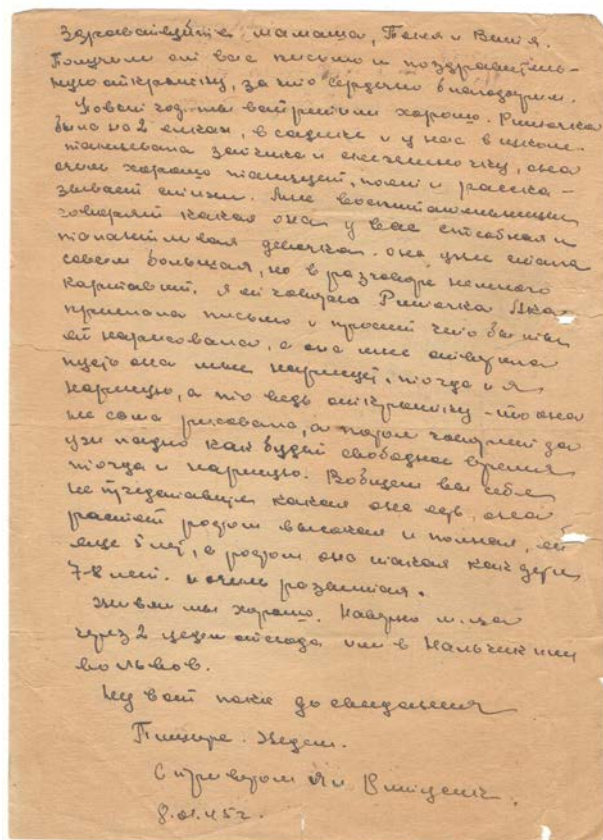 Здравствуйте мамаша, Геня и Витя.
Получили от вас письмо и поздравитель-
ную открытку, за что сердечно благодарим.
Новый год мы встретили хорошо. Риточка
была на 2 елках, в садике и у нас в школе.
танцевала зайчика и снежиночку, она
очень хорошо танцует, поет и расска-
зывает стихи. Мне воспитательницы
говорят какая она у вас способная и
талантливая девочка. она уже стала
совсем большая, но в разговоре немного
картавит. Я ей говорила Риточка
прислала письмо и просит чтобы ты
ей нарисовала, а она мне ответила
пусть она мне нарисует, тогда и я
нарисую, а то ведь открытку - то она
не сама рисовала, а потом говорит да
уж ладно как будет свободное время
тогда и нарисую. Вобщем вы себе
не представите какая она есть, она
растет ростом высокая и полная, ей
еще 5 лет, а ростом она такая как дети
7-8 лет. и очень развитая.
Живем мы хорошо. Наверно
через 2 уедем отсюда или в Нальчик или
во Львов.
Ну вот пока до свидания
Пишите. Ждем.
С приветом Ян
8.01.45г.